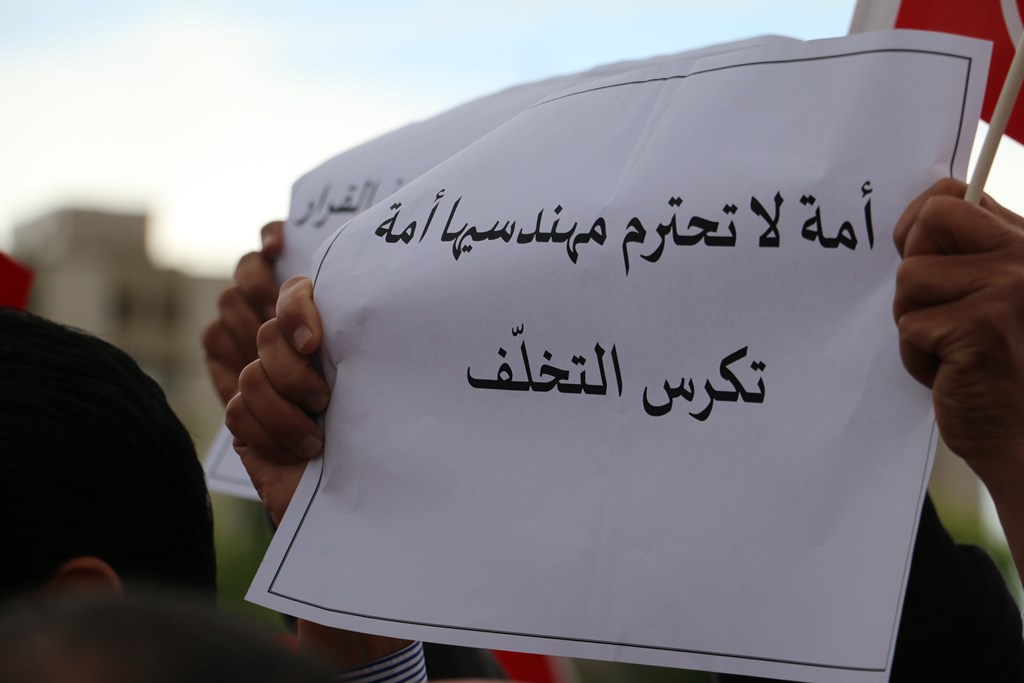 أمة لا تحترم مهندسيها أمة
تكرس التخلّف
القرار